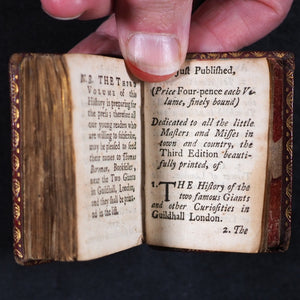 N.B. THE THIRD
VOLUME of this
History is preparing for
the press; therefore all
our young readers who
are willing to subscribe,
may be pleased to send
their names to Thomas
Boreman, Bookseller,
near the Two Giants
in Guildhall, London,
and they shall be print-
ed in the list.
just Published,
(Price Four-pence each Vo-
lume, finely bound)
Dedicated to all the little
Masters and Misses in
town and country, the
Third Edition beauti-
fully printed, of
1. THE History of the
two famous Giants
and other Curiosities in
Guildhall London.
2. The